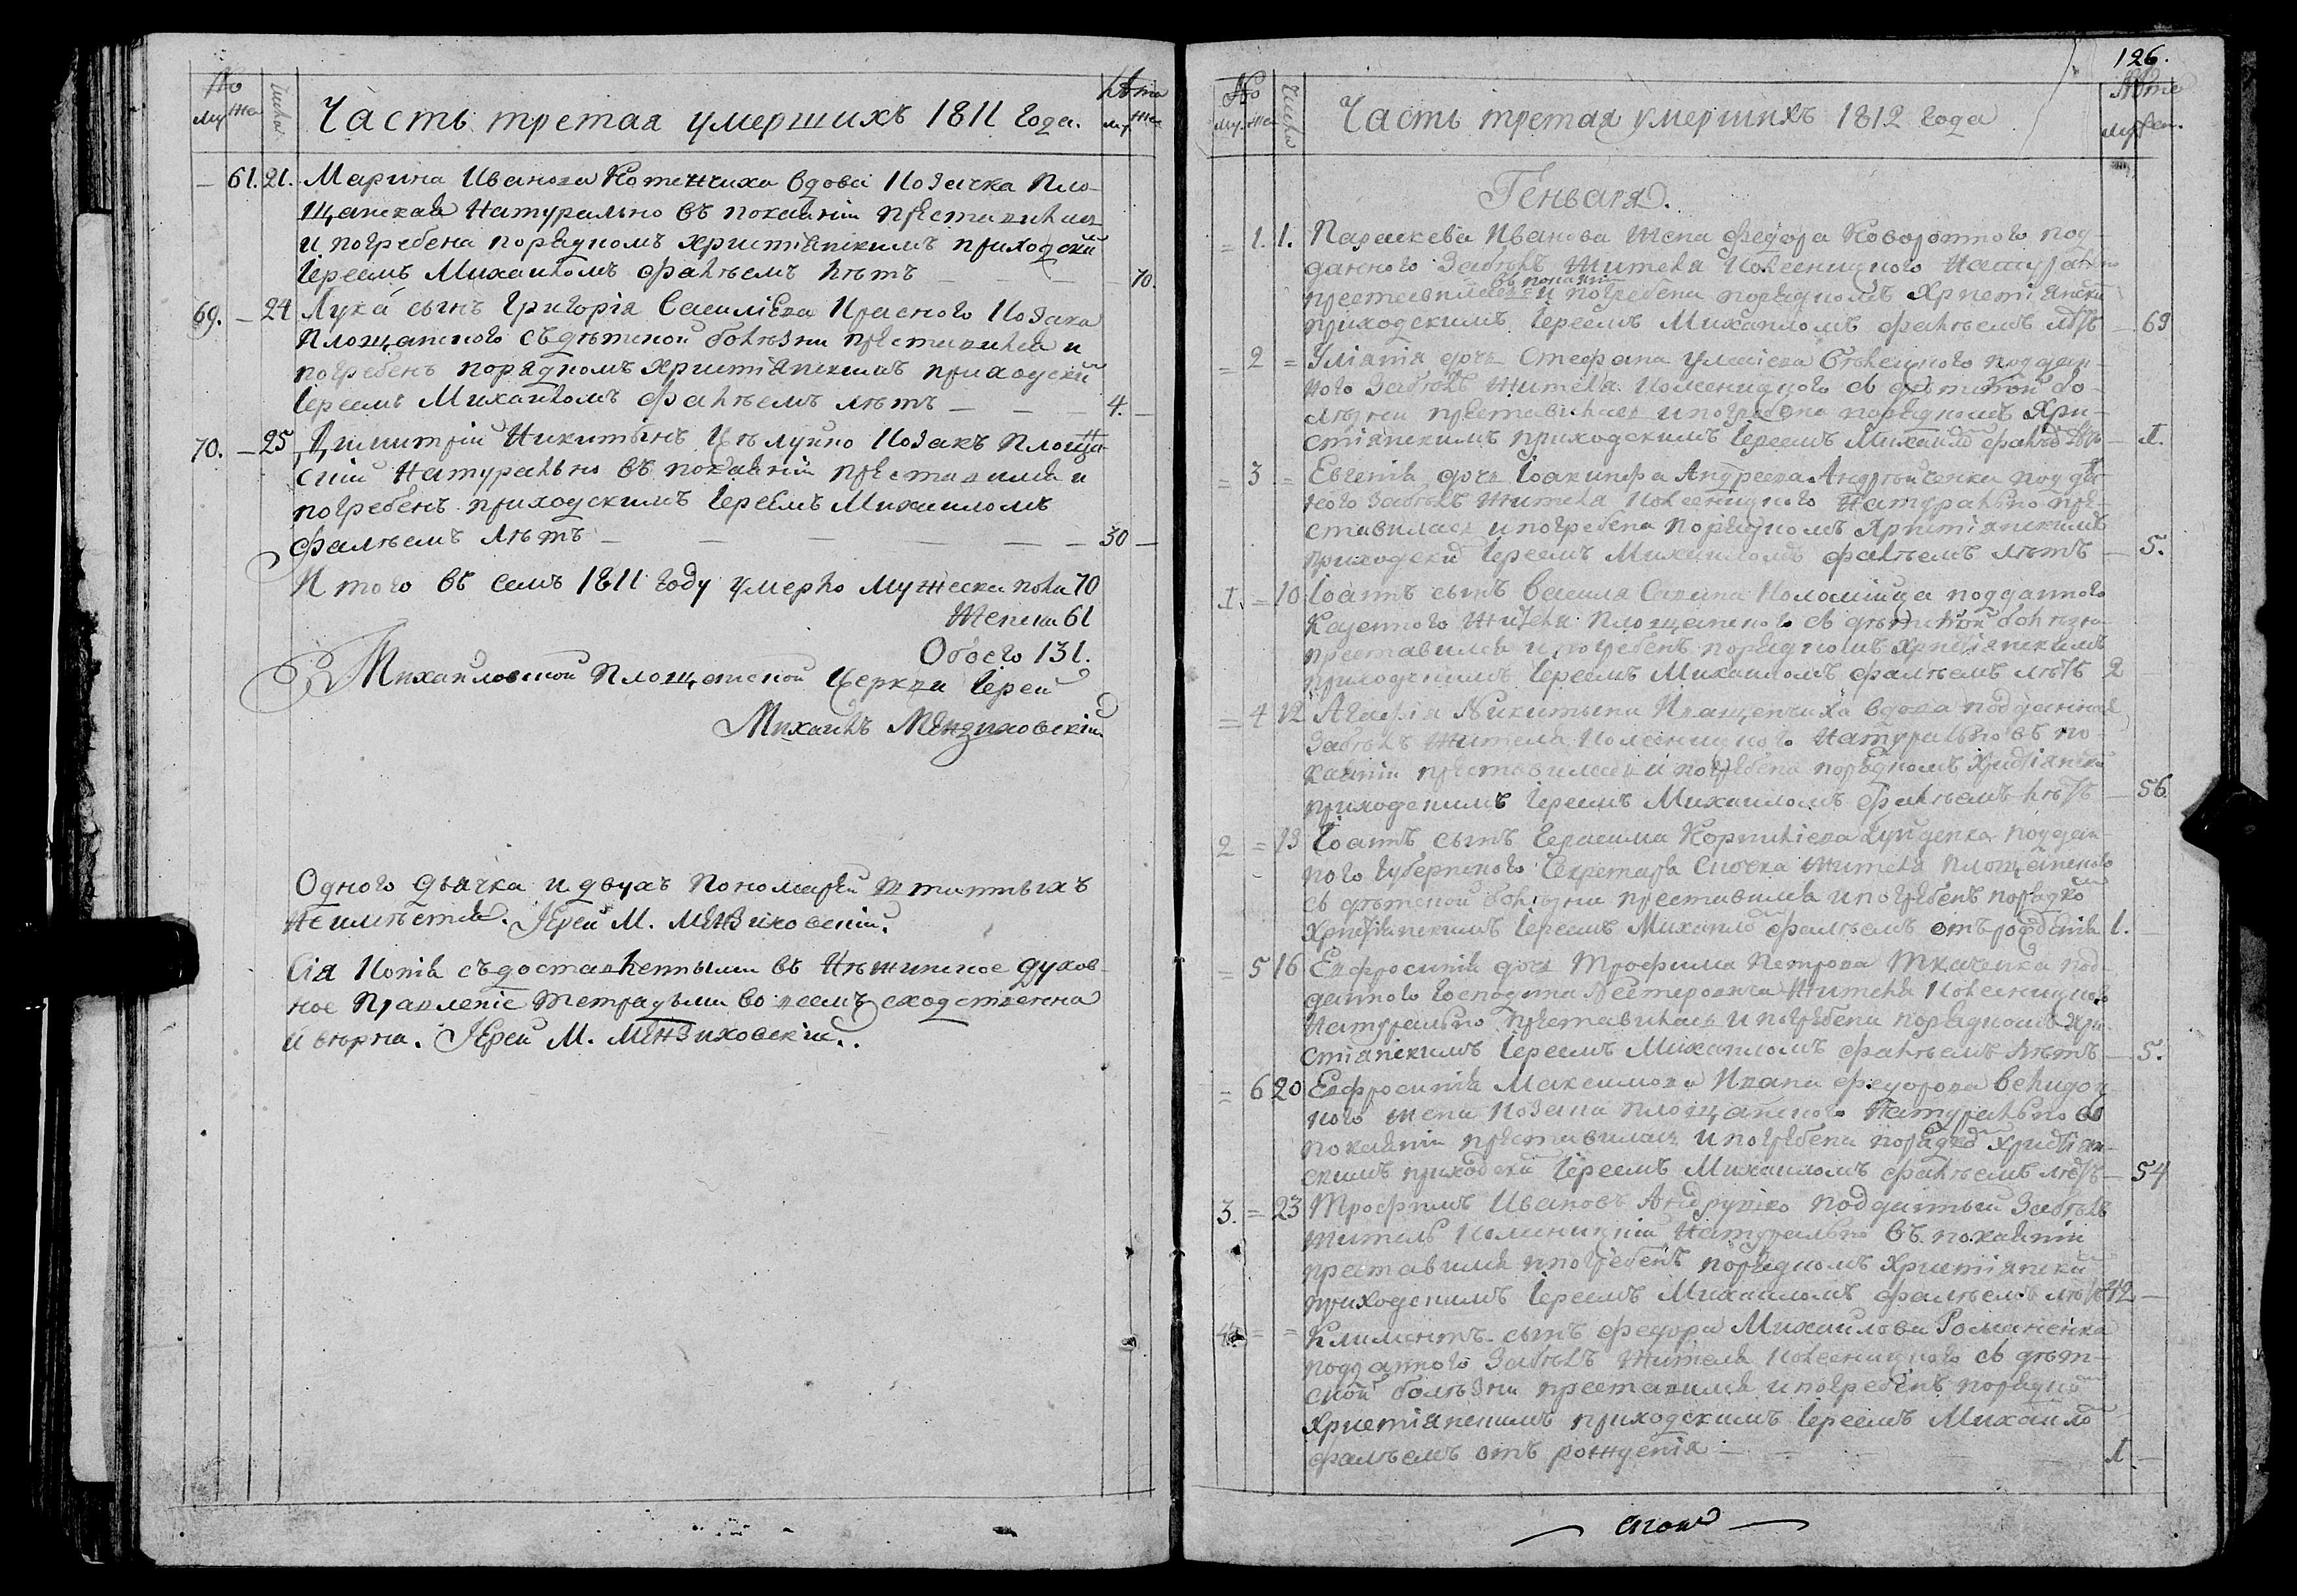 № Числа Лѣта
му же му же
Часть третая умершихъ 1811 Года.
— 61. 21. Марина Иванова вдова Козачка Пло-
щанская Натурально въ покаянiи преставилась
и погребена порядкомъ христiянскимъ приходски
Iереемъ Михаиломъ Фалѣемъ лѣтъ — — — 70.
69. — 24 Лука сынъ Григорiя Василiева Красного Козака
Площанского съ дѣтской болѣзни преставился и
погребенъ порядкомъ христiянскимъ приходски
Iереемъ Михаиломъ Фалѣемъ лѣтъ — — 4. —
70. — 25 Димитрiй Никитинъ Козакъ Площан-
скiй Натурально въ покаянiи преставился и
погребенъ приходскимъ Iереемъ Михаиломъ
Фалѣемъ лѣтъ — — — — — 30 —
Итого въ семъ 1811 году умерло Мужеска пола 70
Женска 61
Обоего 131.
Михайловской Площанской Церкви Iерей
Михаилъ Мензиховскiй
Одного дьячка и двухъ пономарей штатныхъ
не имѣется. Iерей М. Мензиховскiй.
Сiя Копiя съ доставленными въ Нѣжинское духов-
ное Правленiе тетрадьми во всемъ сходственна
и вѣрна. Iерей М. Мензиховскiй.
126.
№ Числа Лѣта
му же му же.
Часть третая умершихъ 1812 года
Генваря.
= 1. 1. Параскева Иванова жена Федора Коворотного под-
данного Забѣлъ жителя Колесницкого Натурально
въ покаянiи
преставилась и погребена порядкомъ Христiянски
приходскимъ Iереемъ Михаиломъ Фалѣемъ лѣтъ — 69
= 2 = Улiянiя дочь Стефана поддан-
ного Забѣлъ жителя Колесницкого съ дѣтской бо-
лѣзни преставилась и погребена порядкомъ Хри-
стiянскимъ приходскимъ Iереемъ Михаило Фалѣе лѣтъ — 1.
= 3 = Евгенiя дочь Iоакинфа Андреева Андрѣйченка поддан-
ного Забѣлъ жителя Колесницкого Натурально пре-
ставилась и погребена порядкомъ Христiянскимъ
приходски Iереемъ Михаиломъ Фалѣемъ лѣтъ — 5.
1. = 10 Iоаннъ сынъ Василя Коломiйца подданного
Казенного жителя Площанского съ дѣтской болѣзни
преставился и погребенъ порядкомъ Христiянскимъ
приходскимъ Iереемъ Михаиломъ Фалѣемъ лѣтъ 2 —
= 4 12 Агафiя Никитина Иващенчиха вдова подданная
Забѣлъ жителя Колесницкого Натурально въ по-
каянiи преставилась и погребена порядкомъ Христiянски
приходскимъ Iереемъ Михаиломъ Фалѣемъ лѣтъ — 56.
2 = 13 Iоаннъ сынъ Герасима Корнилiева поддан-
ного Губернского Секретаря жителя Площанского
съ дѣтской болѣзни преставился и погребенъ порядко
Христiянскимъ Iереемъ Михаило Фалѣемъ отъ рожденiя 1. —
= 5 16 Евфросинiя дочь Трофима Петрова Ткаченка под-
данного Господина Нестеровича жителя Колесницкого
Натурально преставилась и погребена порядкомъ Хри-
стiянскимъ Iереемъ Михаиломъ Фалѣемъ лѣтъ — 5.
= 6 20 Евфросинiя Максимова Ивана Федорова
ного жена Козака Площанского Натурально во
покаянiи преставилась и погребена порядко Христiян-
скимъ приходски Iереемъ Михаиломъ Фалѣемъ лѣтъ — 54
3. = 23 Трофимъ Ивановъ Андрушко подданный Забѣлъ
житель Колесницкiй Натурально въ покаянiи
преставился и погребенъ порядкомъ Христiянски
приходскимъ Iереемъ Михаиломъ Фалѣемъ лѣтъ 42 —
4. = = Климентъ сынъ Федора Михаилова Романенка
подданного Забѣлъ жителя Колесницкого съ дѣт-
ской болѣзни преставился и погребенъ порядко
Христiянскимъ приходскимъ Iереемъ Михаило
Фалѣемъ отъ рожденiя — — 1. —